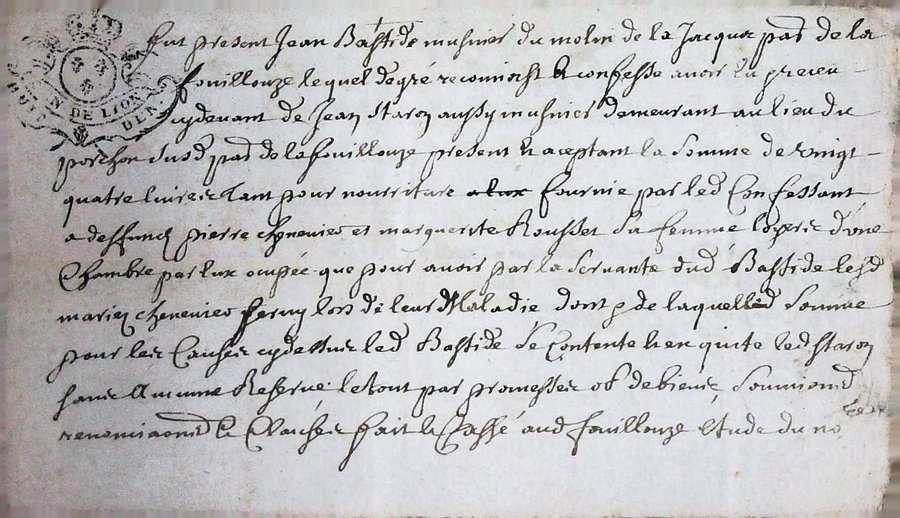 DE LION
fut present Jean Bastide musnier du molin de la Jacqua pad de la
fouillouze lequel de gré reconnoist & confesse avoir eu & receu
cydevant de Jean Staron aussy musnier demeurant au lieu du
porchon susd pad de la fouillouze present & aceptant la somme de vingt
quatre livres tant pour nourriture a eux fournie par led Confessant
a deffunct pierre chenevier et marguerite Rousset sa femme loyers d'une
Chambre par eux ocupée que pour avoir par la servante dud Bastide lesd
mariez chenevier servy lors de leur Maladie dont & de laquelle somme
pour les Causes cydessus led Bastide se Contente & en quite led Staron
sans Aucune Reserve le tout par promesses ob de biens soumiond
renonciaond & Clauses fait & Passé aud fouillouze Etude du no